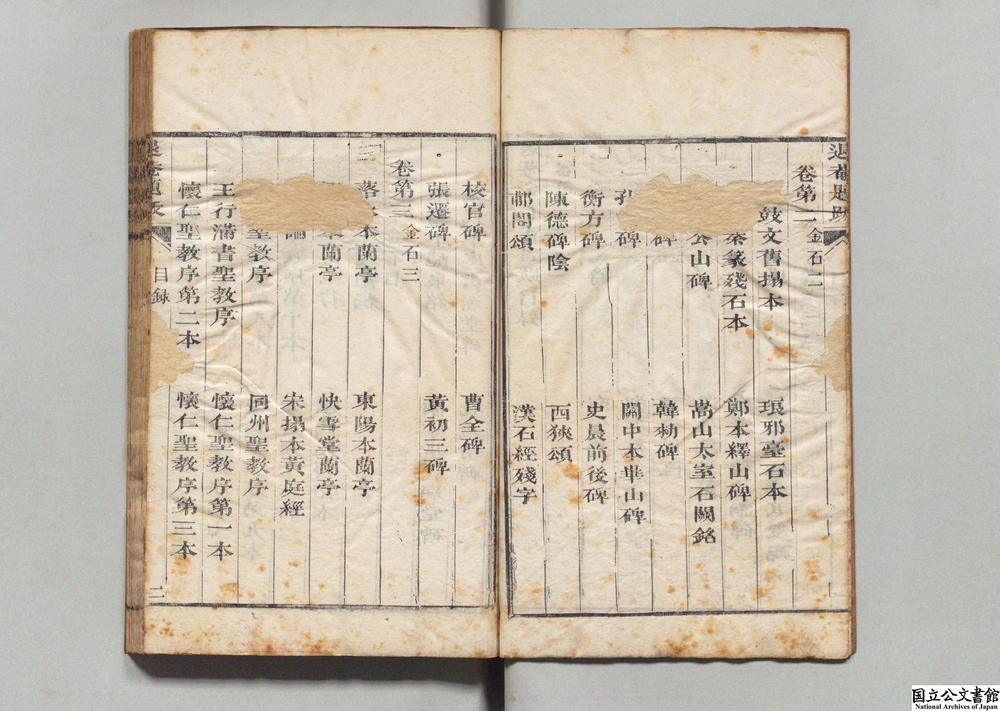 退菴題跋
卷第二 金石二
鼓文舊搨本 琅邪臺石本
秦篆殘石本 鄭本繹山碑
公山碑 嵩山太室石闕銘
碑 韓勑碑
孔 碑 關中本華山碑
衡方碑 史晨前後碑
陳德碑陰 西狹頌
郙閣頌 漢石經殘字
校官碑 曹全碑
張遷碑 黃初三碑
卷第三 金石三
落 本蘭亭 東陽本蘭亭
蘭亭 快雪堂蘭亭
宋搨本黃庭經
聖教序 同州聖教序
王行滿書聖教序 懷仁聖教序第一本
懷仁聖教序第二本 懷仁聖教序第三本
退菴題跋 目錄
国立公文書館
National Archives of Japan